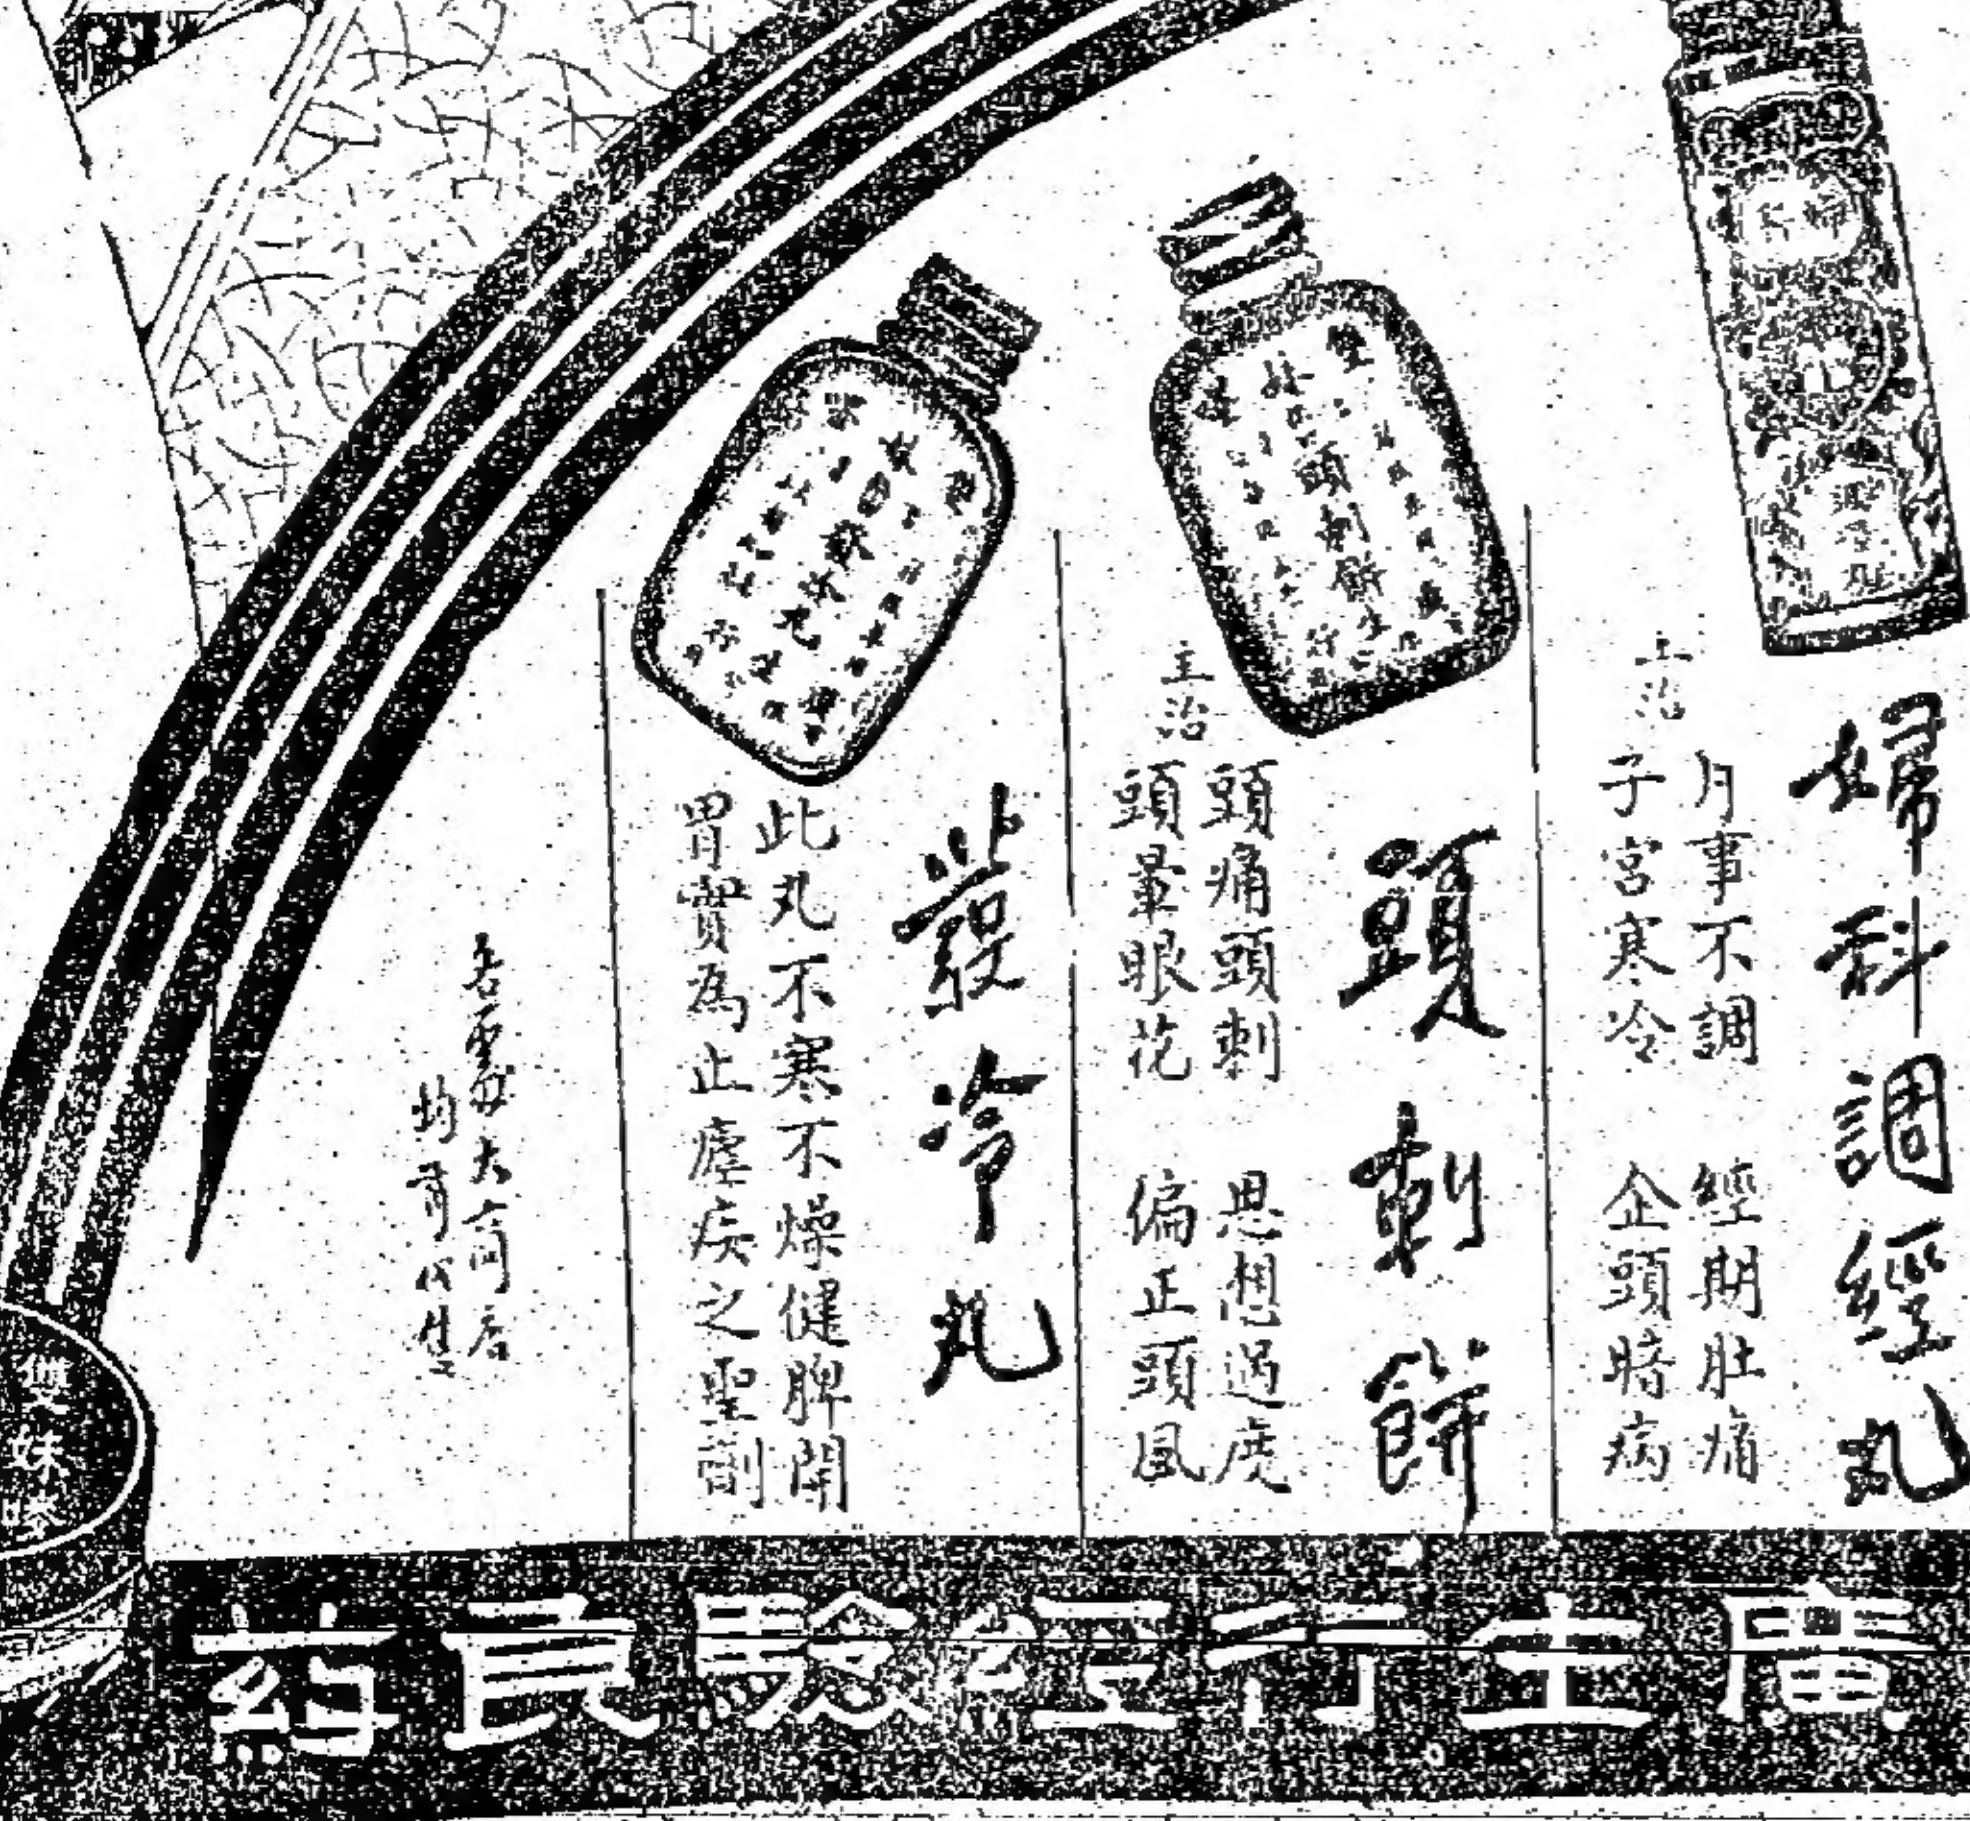 婦科調經丸
主治
月事不調 經期肚痛
子宮寒冷 企頭暗病
頭刺餅
主治
頭痛頭刺 思想過度
頭暈眼花 偏正頭風
發冷丸
此丸不寒不燥健脾開
胃實為止瘧疾之聖劑
各埠大商店
均有代售
頭刺餅
雙妹嚜
廣生行經驗良葯